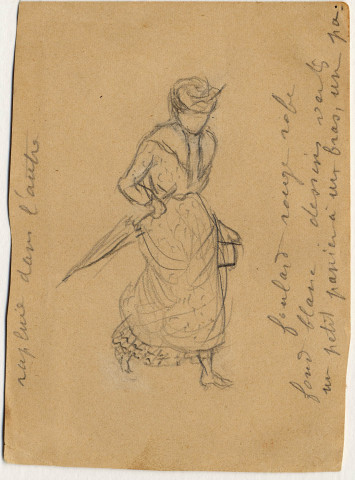 foulard rouge robe
fond blanc dessins verts
un petit panier a un bras, un pa-
rapluie dans l'autre